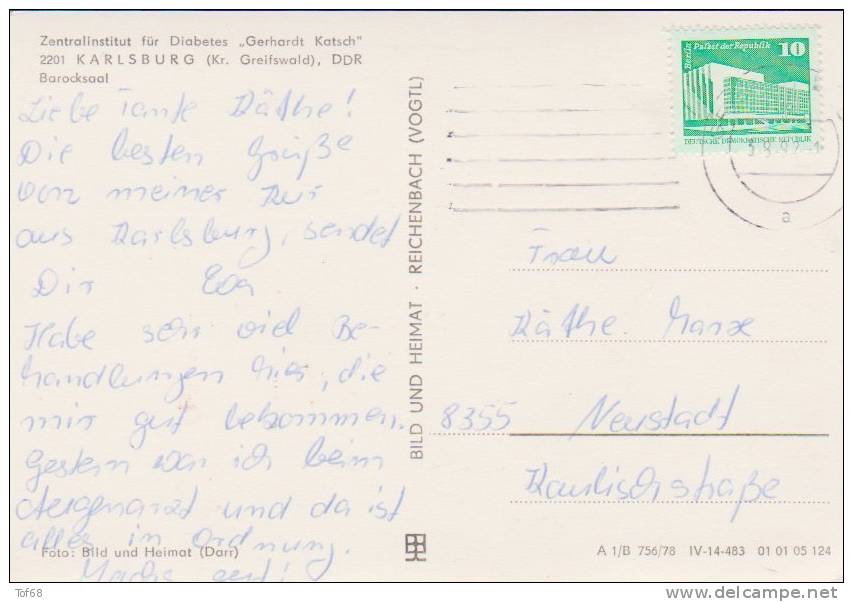 Zentralinstitut für Diabetes „Gerhardt Katsch"
2201 KARLSBURG (Kr. Greifswald), DDR
Barocksaal
Liebe Tante Käthe!
Die besten Grüße
von meiner Kur
aus Karlsburg, sendet
Dir Eva
Habe sehr viel Be-
handlungen hier, die
mir gut bekommen.
Gestern war ich beim
Augenarzt und da ist
alles in Ordnung.
Machs gut!
Foto: Bild und Heimat (Darr)
BILD UND HEIMAT · REICHENBACH (VOGTL)
Berlin Palast der Republik 10
DEUTSCHE DEMOKRATISCHE REPUBLIK
a
Frau
Käthe
8355 Neustadt
A 1/B 756/78 IV-14-483 01 01 05 124
Tof68
delcampe.net